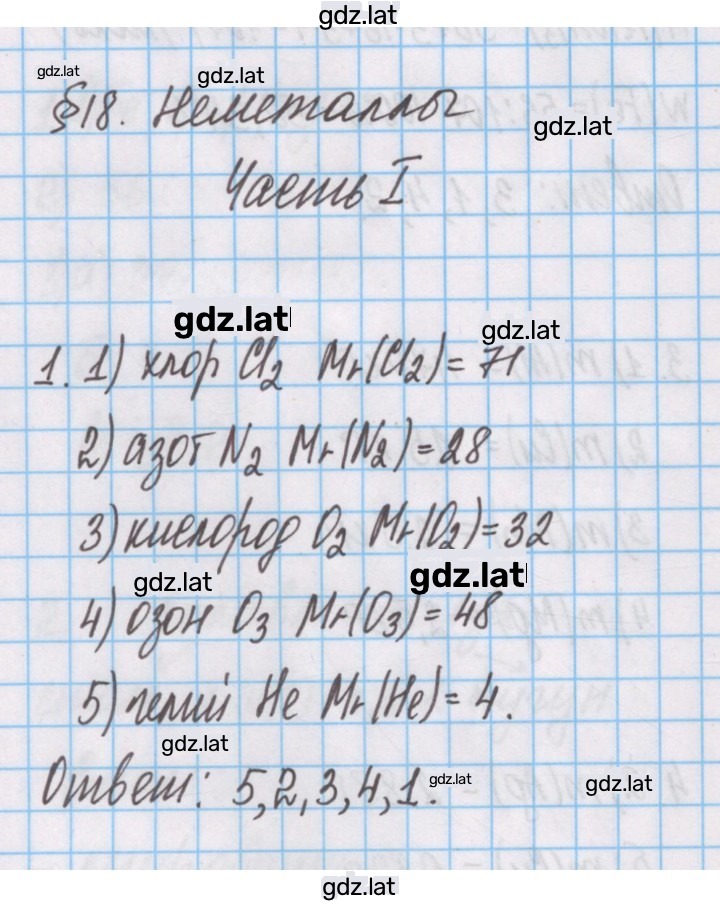 gdz.lat
gdz.lat
gdz.lat
§18. Неметаллы
gdz.lat
Часть I
gdz.lat
gdz.lat
1. 1) хлор Cl₂ Mr(Cl₂)= 71
2) азот N₂ Mr(N₂)=28
3) кислород O₂ Mr(O₂)=32
gdz.lat
gdz.lat
4) озон O₃ Mr(O₃)= 48
5) гелий He Mr(He)= 4.
gdz.lat
Ответ: 5,2,3,4,1.
gdz.lat
gdz.lat
gdz.lat